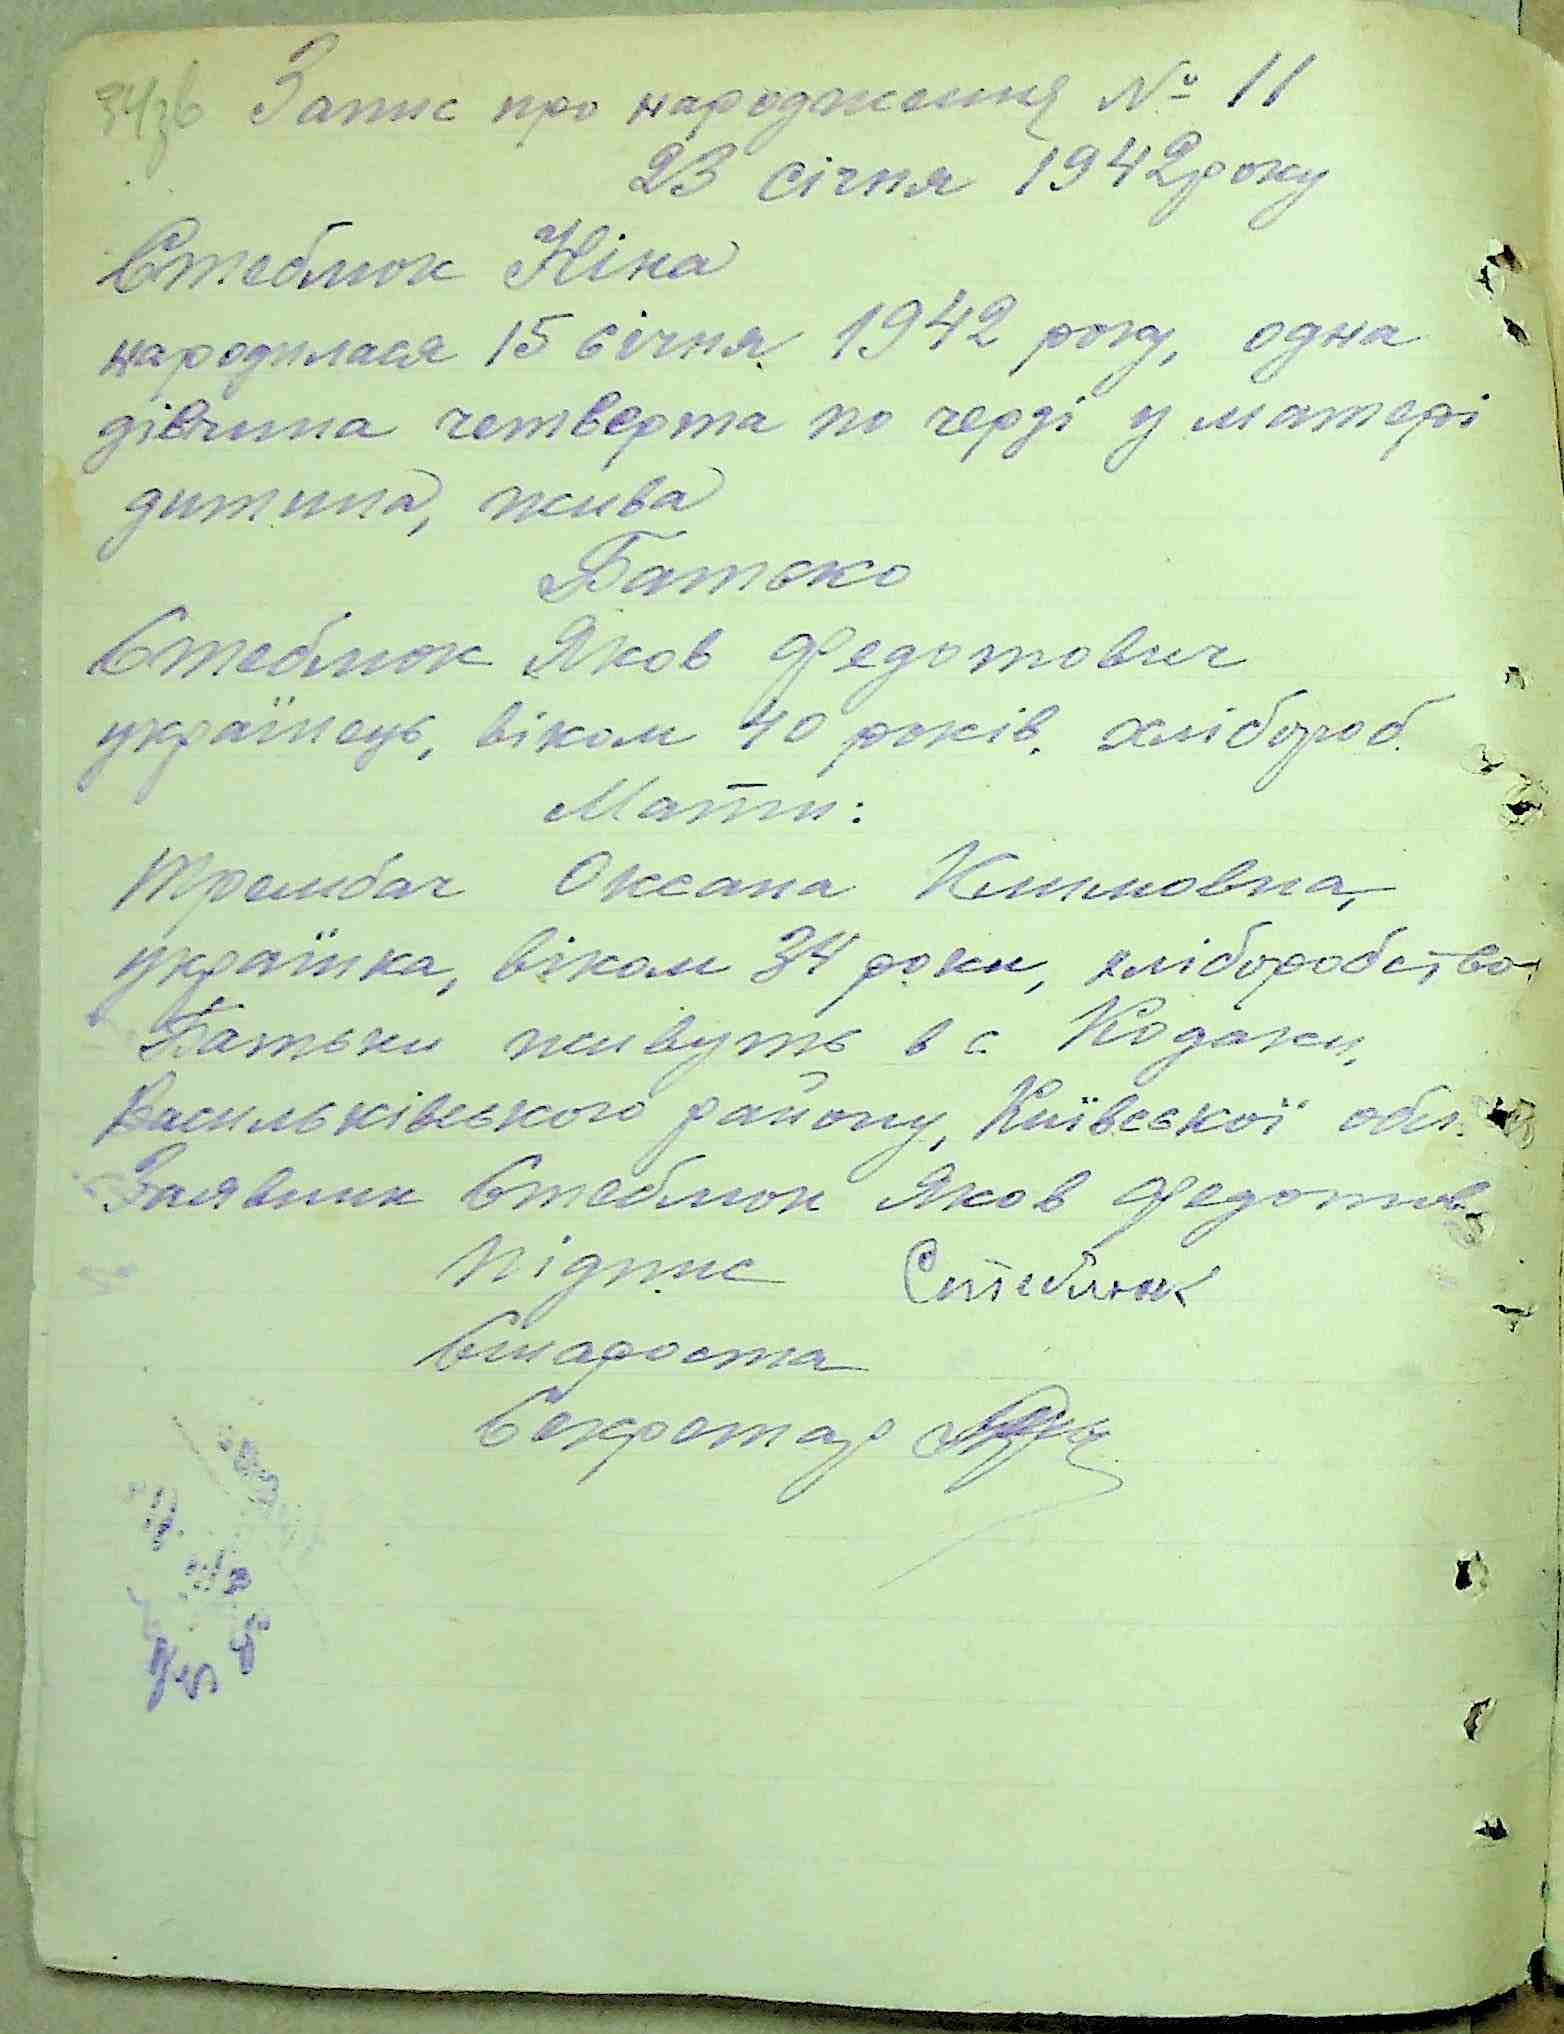 34зв Запис про народження № 11
23 січня 1942 року
Стеблюк Ніна
народилася 15 січня 1942 року, одна
дівчина четверта по черзі у матері
дитина, жива
Батько
Стеблюк Яков Федотович
українець, віком 40 років, хлібороб.
Мати:
Трембач Оксана Климовна,
українка, віком 34 роки, хліборобство.
Батьки живуть в с. Кодаки,
Васильківського району, Київської обл.
Заявник Стеблюк Яков Федотов.
Підпис Стеблюк
Староста
Секретар